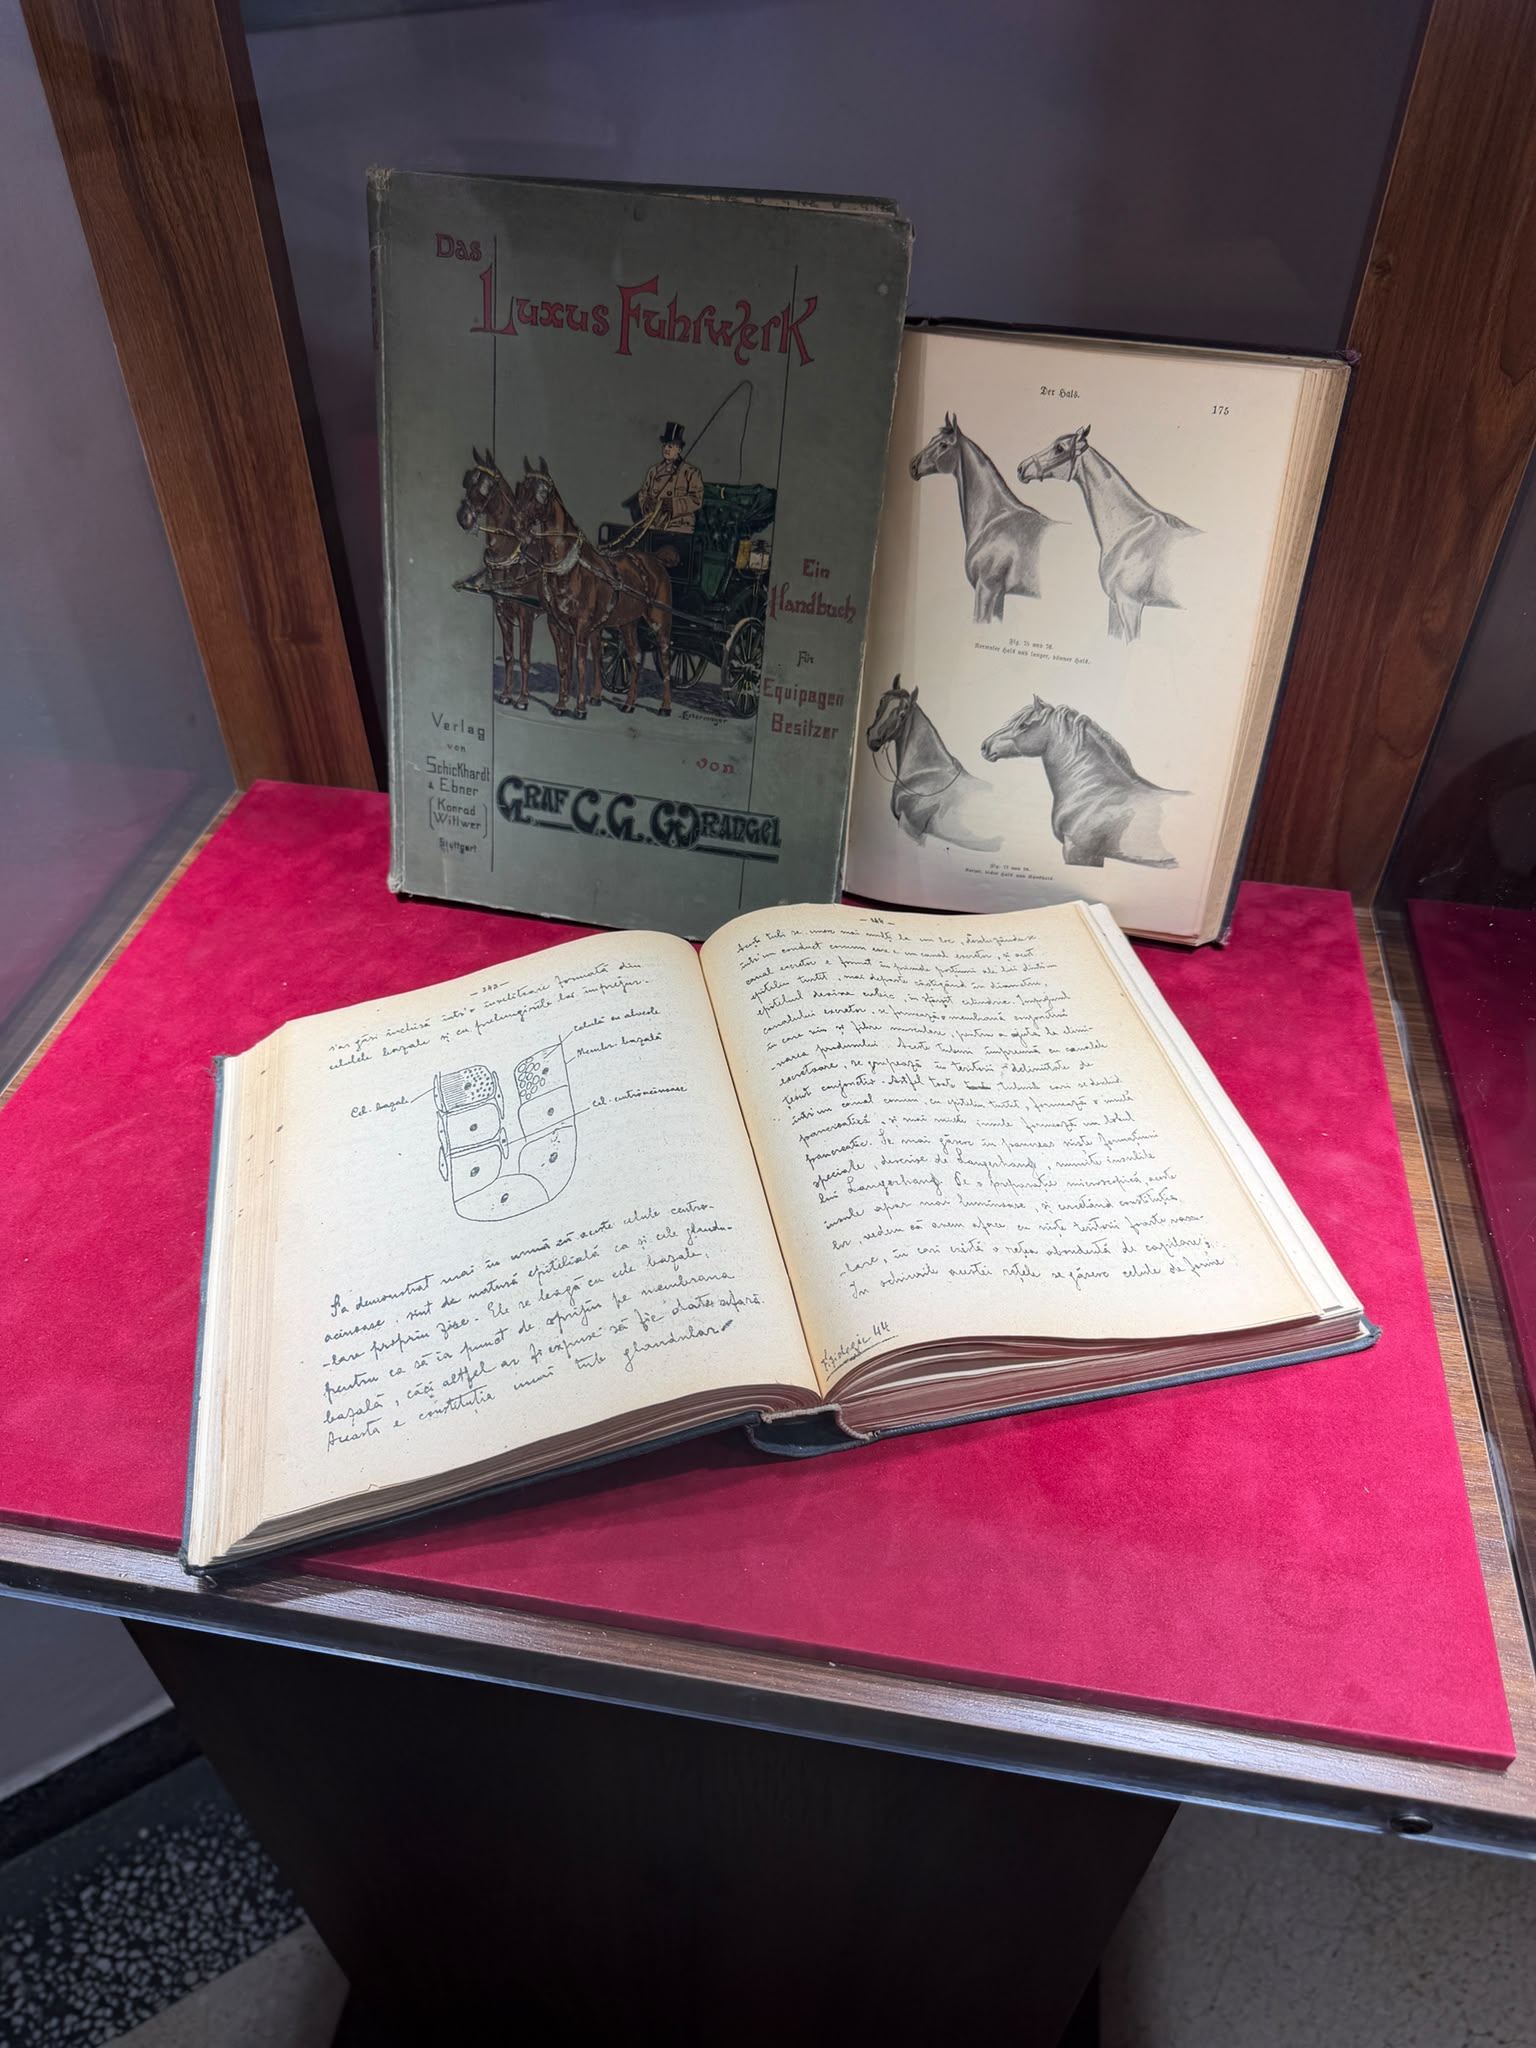 Das
Luxus Fuhrwerk
Ein
Handbuch
Für
Equipagen
Besitzer
von
Graf C. G. Wrangel
Verlag
von
Schickhardt
& Ebner
(Konrad
Wittwer)
Stuttgart.
Der Hals.
175
Fig. 75 und 76.
Normaler Hals und langer, dünner Hals.
Fig. 77 und 78.
— 343 —
s'ar găsi închisă într'o învelitoare formată din
celulele bazale și cu prelungirile lor împrejur.
celulă cu alveole
Membr. bazală
Cel. bazale
Cel. centroacinoase
S'a demonstrat mai în urmă că aceste celule centro-
acinoase, sînt de natură epitelială ca și cele glandu-
-lare propriu zise. Ele se leagă cu cele bazale,
pentru ca să ia punct de sprijin pe membrana
bazală, căci altfel ar fi expuse să fie date afară.
Aceasta e constituția unui tub glandular
— 344 —
Acești tubi se unesc mai mulți la un loc, deschizându-se
într'un conduct comun care e un canal excretor, și acest
canal excretor e format în primele porțiuni ale lui dintr'un
epiteliu turtit, mai departe câștigând în diametru,
epiteliul devine cubic, în sfârșit cilindric. Împrejurul
canalului excretor, se formează o membrană conjunctivă
în care sin și fibre musculare, pentru a ajuta la elimi-
-narea produsului. Aceste tuburi împreună cu canalele
excretoare, se grupează în teritorii, delimitate de
țesut conjonctiv. Astfel toate tuburile cari se deschid
într'un canal comun, cu epiteliu turtit, formează o insulă
pancreatică, și mai multe insule formează un lobul
pancreatic. Se mai găsesc în pancreas niște formațiuni
speciale, descrise de Langerhans, numite insulele
lui Langerhans. Pe o preparație microscopică, aceste
insule apar mai luminoase, și cercetând constituția
lor, vedem că avem aface cu niște teritorii foarte vascu-
-lare, în cari există o rețea abondentă de capilare;
În ochiurile acestei rețele se găsesc celule de forme
44